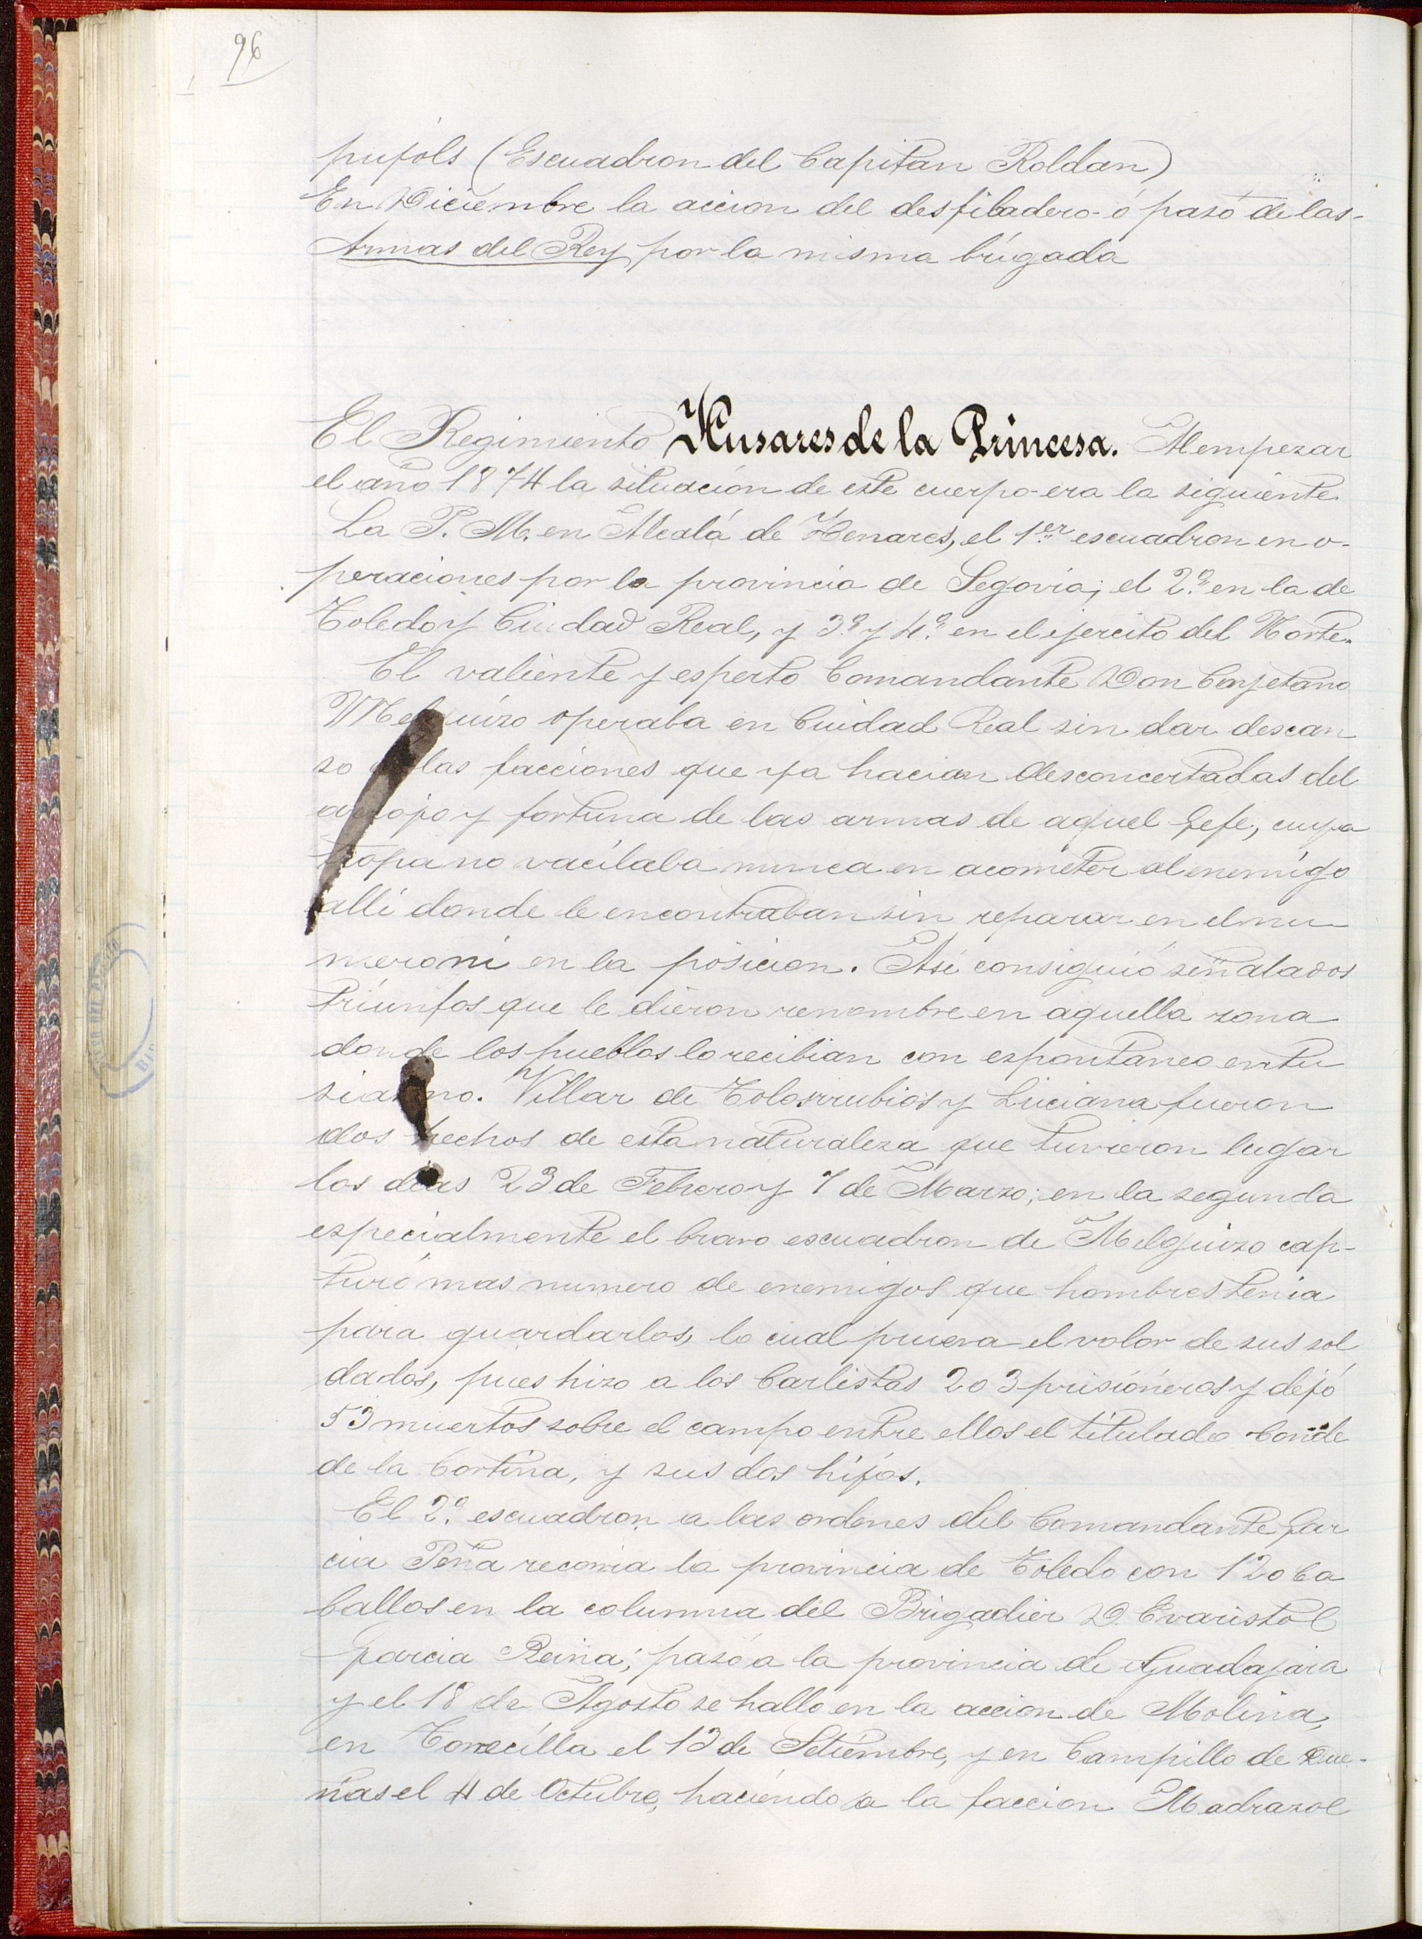 96
pujóls (Escuadron del Capitan Roldan)
En Diciembre la accion del desfiladero ó pasó de las
Armas del Rey, por la misma brigada
El Regimiento Husares de la Princesa. Al empezar
el año 1874 la situación de este cuerpo era la siguiente
La P. M. en Alcalá de Henares, el 1.er escuadron en o-
peraciones por la provincia de Segovia; el 2.º en la de
Toledo y Ciudad Real, y 3.º y 4.º en el ejercito del Norte.
El valiente y esperto Comandante Don Cayetano
Melguizo operaba en Ciudad Real sin dar descan
so a las facciones que ya hacian desconcertadas del
arrojo y fortuna de las armas de aquel Gefe, cuya
tropa no vacilaba nunca en acometer al enemigo
alli donde le encontraban sin reparar en el nu
mero ni en la posicion. Asi consiguió señalados
triunfos que le dieron renombre en aquella zona
donde los pueblos lo recibian con espontaneo entu
siasmo. Villar de Tolosrrubios y Luciana fueron
dos hechos de esta naturaleza que tuvieron lugar
los dias 23 de Febrero y 7 de Marzo; en la segunda
especialmente el bravo escuadron de Melguizo cap-
turó mas numero de enemigos que hombres tenia
para guardarlos, lo cual prueva el valor de sus sol
dados, pues hizo a los Carlistas 203 prisióneros y dejó
53 muertos sobre el campo entre ellos el titulado Conde
de la Cortina, y sus dos hijos.
El 2.º escuadron a las ordenes del Comandante Gar
cia Peña recorria la provincia de Toledo con 120 Ca
ballos en la columna del Brigadier D. Evaristo
Garcia Reina; pasó a la provincia de Guadajara
y el 18 de Agosto se halló en la accion de Molina,
en Torrecilla el 13 de Setiembre, y en Campillo de Due-
ñas el 4 de Octubre, haciendo a la faccion Madrazo